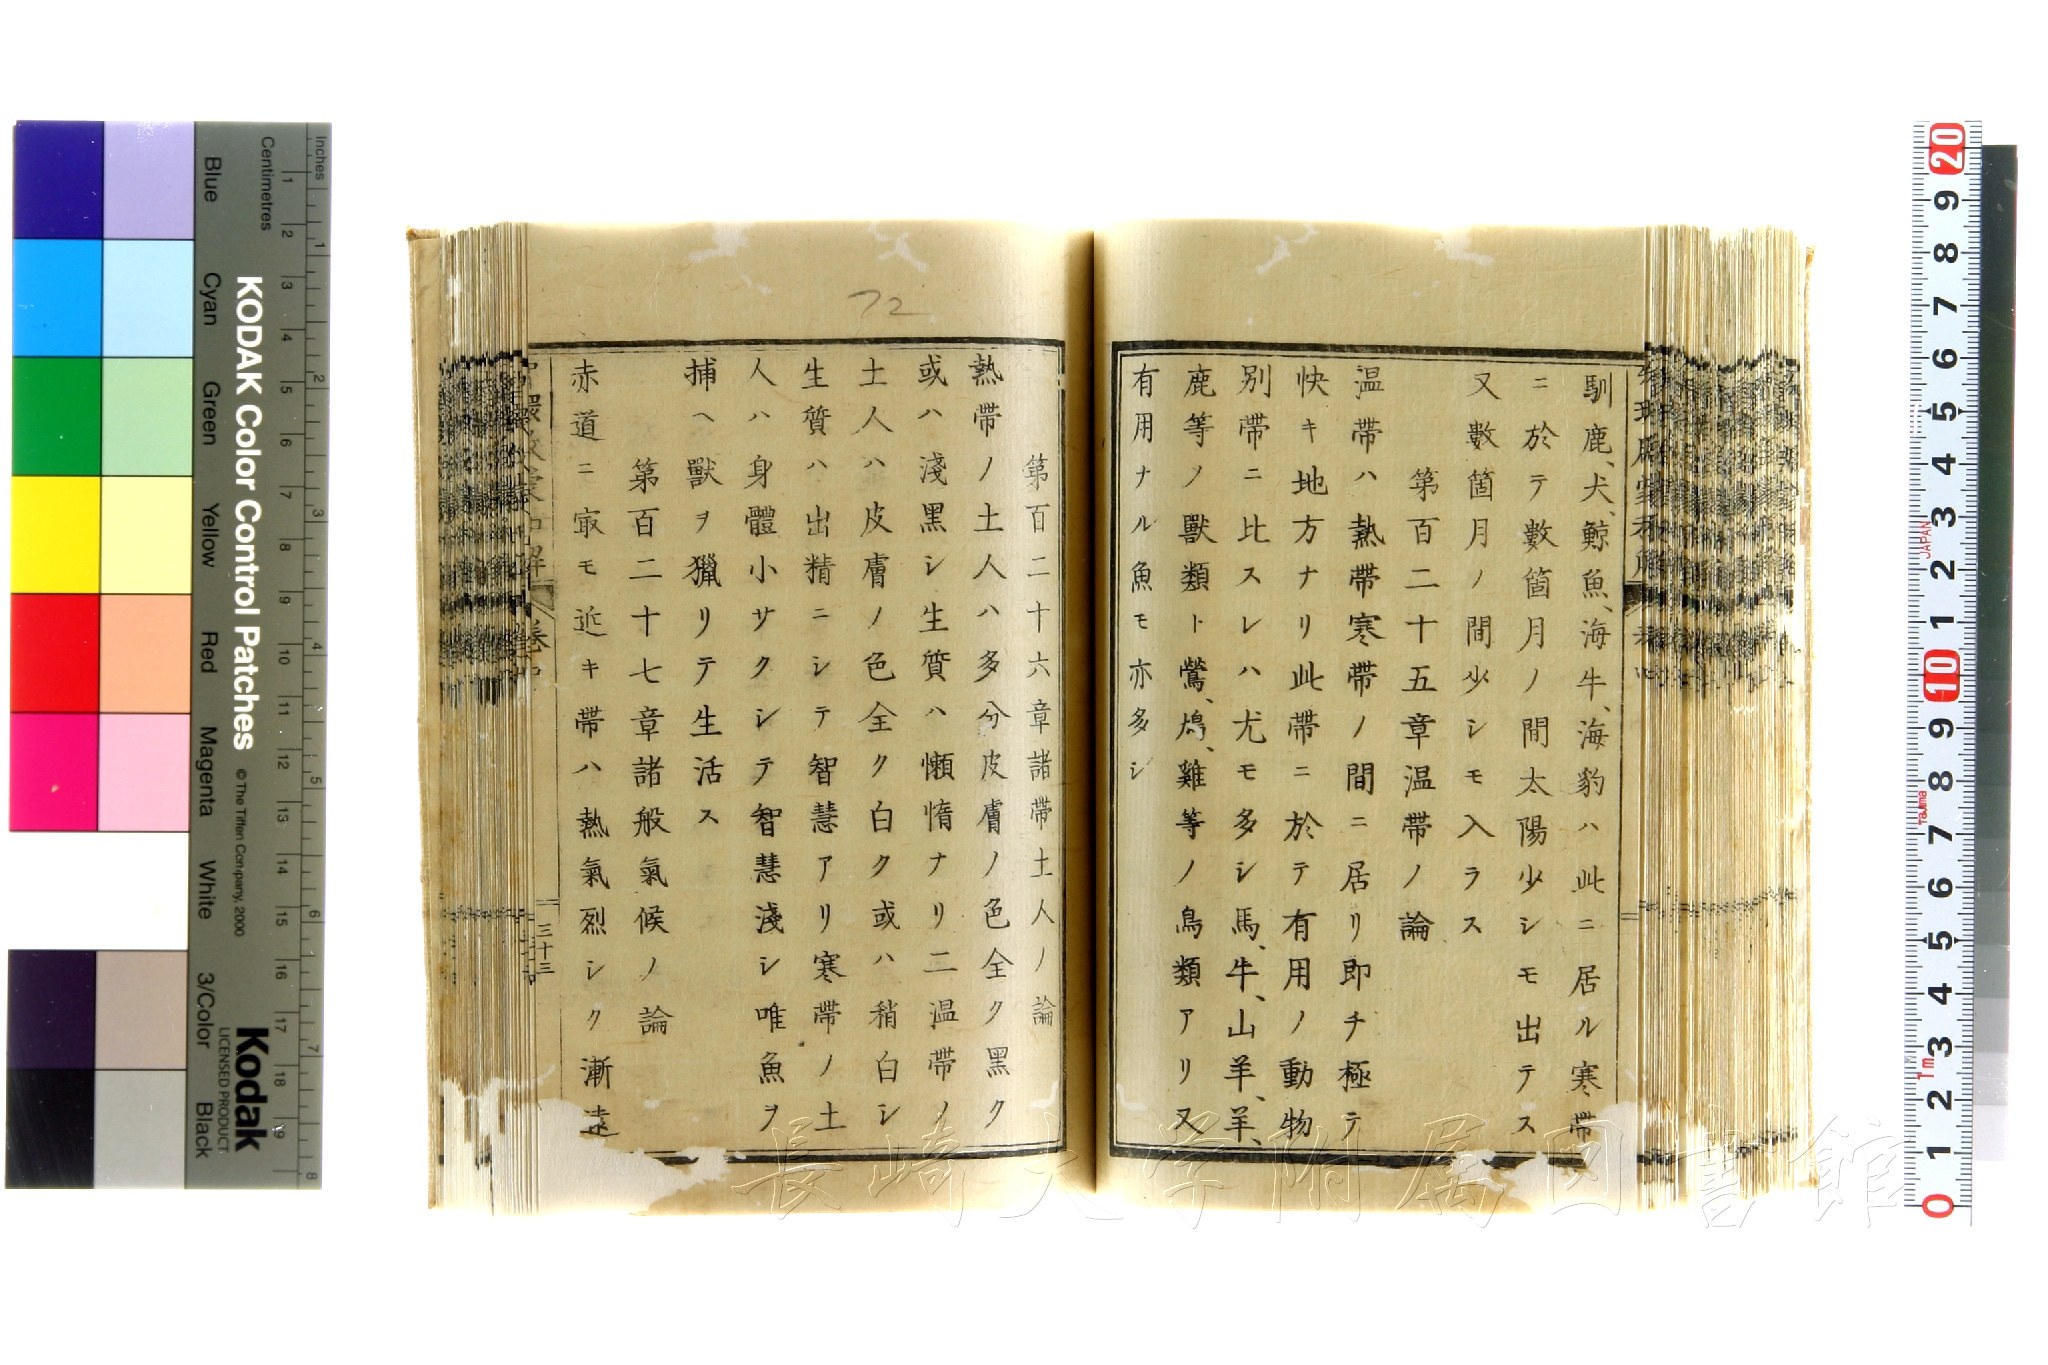 馴鹿、犬、鯨魚、海牛、海豹ハ此ニ居ル寒帶
ニ於テ數箇月ノ間太陽少シモ出テス
又數箇月ノ間少シモ入ラス
第百二十五章温帶ノ論
温帶ハ熱帶寒帶ノ間ニ居リ即チ極テ
快キ地方ナリ此帶ニ於テ有用ノ動物
別帶ニ比スレハ尤モ多シ馬、牛、山羊、羊、
鹿等ノ獸類ト鶯、鳩、雞等ノ鳥類アリ又
有用ナル魚モ亦多シ
第百二十六章諸帶土人ノ論
熱帶ノ土人ハ多分皮膚ノ色全ク黑ク
或ハ淺黑シ生質ハ懶惰ナリ二温帶ノ
土人ハ皮膚ノ色全ク白ク或ハ稍白シ
生質ハ出精ニシテ智慧アリ寒帶ノ土
人ハ身體小サクシテ智慧淺シ唯魚ヲ
捕ヘ獸ヲ獵リテ生活ス
第百二十七章諸般氣候ノ論
赤道ニ㝡モ近キ帶ハ熱氣烈シク漸遠
三十三
72
長崎大学附属図書館
KODAK Color Control Patches
© The Tiffen Company, 2000
Kodak
LICENSED PRODUCT
Inches
1 2 3 4 5 6 7 8
Centimetres
1 2 3 4 5 6 7 8 9 10 11 12 13 14 15 16 17 18 19
Blue
Cyan
Green
Yellow
Red
Magenta
White
3/Color
Black
20 9 8 7 6 5 4 3 2 1 10 9 8 7 6 5 4 3 2 1 0
JAPAN
Tajima
Tm